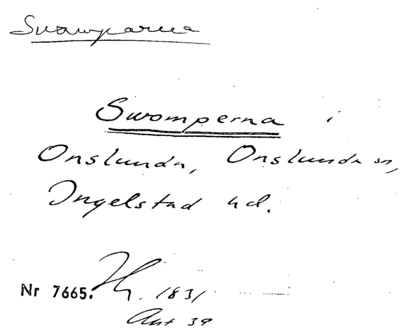 Svamparna
Swomperna i
Onslunda, Onslunda sn,
Ingelstad hd.
Nr 7665. Hy. 1831
Akt 39